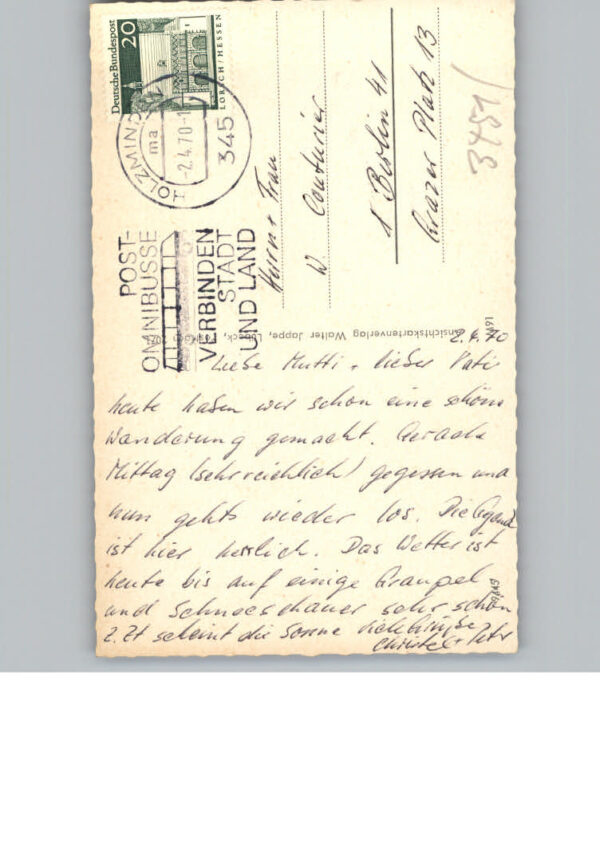 Deutsche Bundespost
20
LORSCH/HESSEN
HOLZMINDEN
ma
-2.4.70-1
345
POST-
OMNIBUSSE
VERBINDEN
STADT
UND LAND
Herrn + Frau
W. Couturier
1 Berlin 41
Grazer Platz 13
3451/
Ansichtskartenverlag Walter Jappe, Lübeck,
2.4.70
Liebe Mutti + lieber Vati
heute haben wir schon eine schöne
Wanderung gemacht. Gerade
Mittag (sehr reichlich) gegessen und
nun gehts wieder los. Die Gegend
ist hier herrlich. Das Wetter ist
heute bis auf einige Graupel
und Schneeschauer sehr schön
z.Zt scheint die Sonne viele Grüße
Christel + Peter